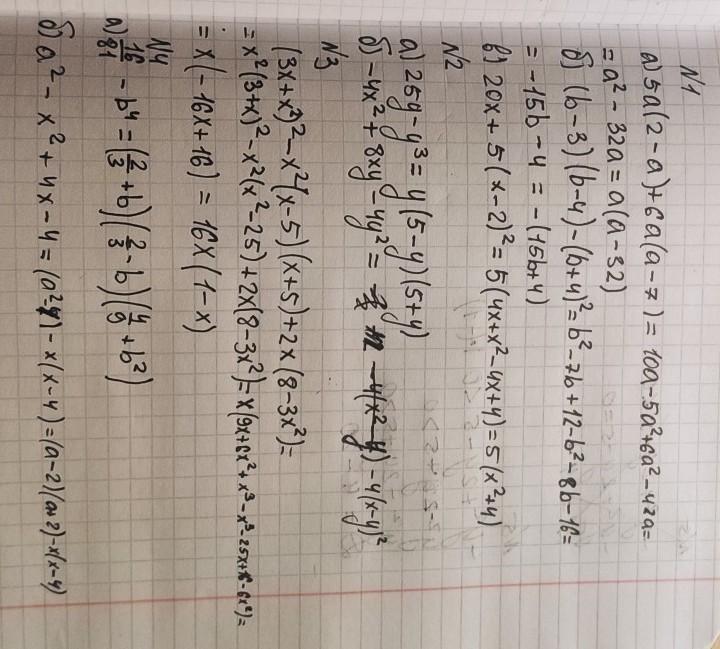 N1
а) 5a(2-a)+6a(a-7)=10a-5a²+6a²-42a=
=a²-32a=a(a-32)
б) (b-3)(b-4)-(b+4)²=b²-7b+12-b²-8b-16=
=-15b-4=-(15b+4)
в) 20x+5(x-2)²=5(4x+x²-4x+4)=5(x²+4)
N2
а) 25y-y³=y(5-y)(5+y)
б) -4x²+8xy-4y²= -4(x²-y) -4(x-y)²
N3
(3x+x²)²-x²(x-5)(x+5)+2x(8-3x²)=
=x²(3+x)²-x²(x²-25)+2x(8-3x²)=x(9x+6x²+x³-x³-25x+16-6x²)=
=x(-16x+16)=16x(1-x)
N4
а) 16/81-b⁴=(2/3+b)(2/3-b)(4/9+b²)
б) a²-x²+4x-4=(a²-4)-x(x-4)=(a-2)(a+2)-x(x-4)